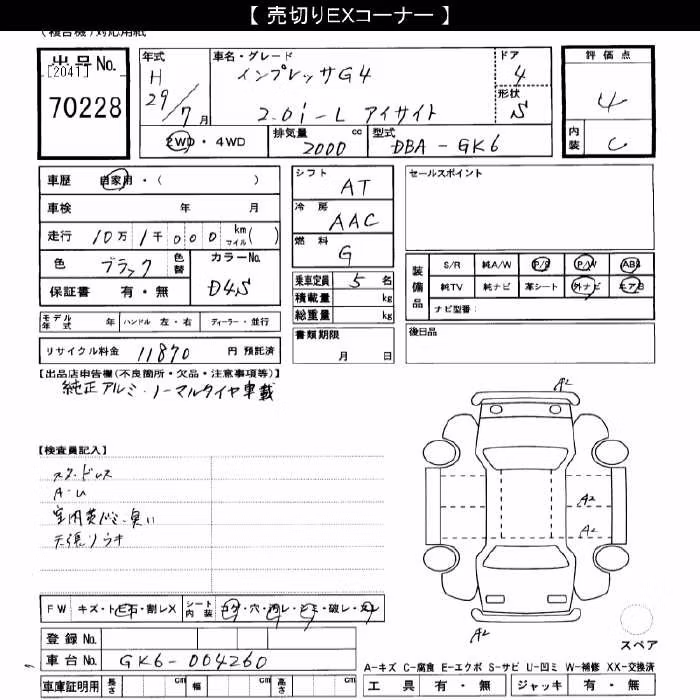 【 売切りEXコーナー 】
出品No.
[2041]
70228
年式
H
29/7月
車名・グレード
インプレッサG4
2.0i-L アイサイト
ドア
4
形状
S
2WD・4WD
排気量
2000 cc
型式
DBA-GK6
評価点
4
内装
C
車歴 自家用・( )
車検 年 月
走行 10万1千000 km マイル( )
色 ブラック 色替
カラーNo.
D4S
保証書 有・無
シフト
AT
冷房
AAC
燃料
G
乗車定員 5名
積載量 kg
総重量 kg
セールスポイント
装備品
S/R 純A/W P/S P/W ABS
純TV 純ナビ 革シート 外ナビ エアB
ナビ型番:
モデル年式 年 ハンドル 左・右 ディーラー・並行
リサイクル料金 11870 円 預託済
書類期限
月 日
後日品
【出品店申告欄(不良箇所・欠品・注意事項等)】
純正アルミ・ノーマルタイヤ車載
【検査員記入】
A-U
天張リウキ
A2
A2
A2
A2
スペア
FW キズ・トビ石・割レX シート内装 コゲ・穴・汚レ・シミ・破レ・スレ
登録No.
車台No. GK6-004260
車庫証明用 長さ cm 幅 cm 高さ cm
A-キズ C-腐食 E-エクボ S-サビ U-凹ミ W-補修 XX-交換済
工具 有・無 ジャッキ 有・無